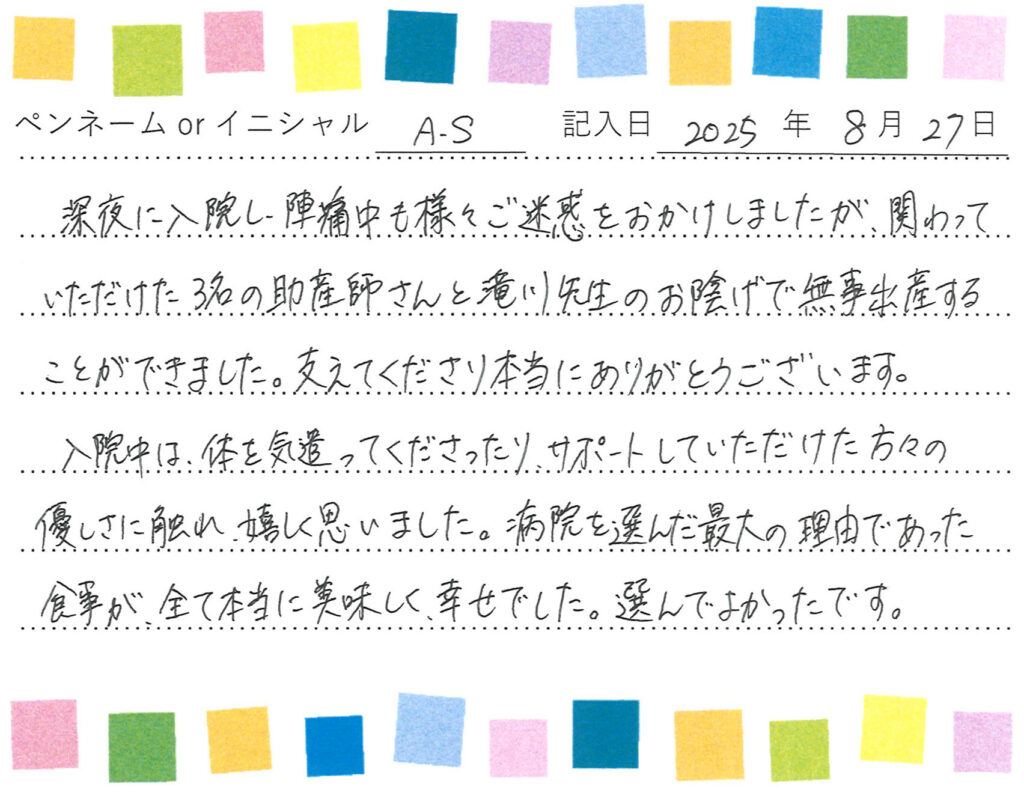 ペンネーム or イニシャル A-S 記入日 2025 年 8 月 27 日
深夜に入院し、陣痛中も様々ご迷惑をおかけしましたが、関わって
いただけた3名の助産師さんと滝川先生のお陰げで無事出産する
ことができました。支えてくださり本当にありがとうございます。
入院中は、体を気遣ってくださったり、サポートしていただけた方々の
優しさに触れ、嬉しく思いました。病院を選んだ最大の理由であった
食事が、全て本当に美味しく、幸せでした。選んでよかったです。